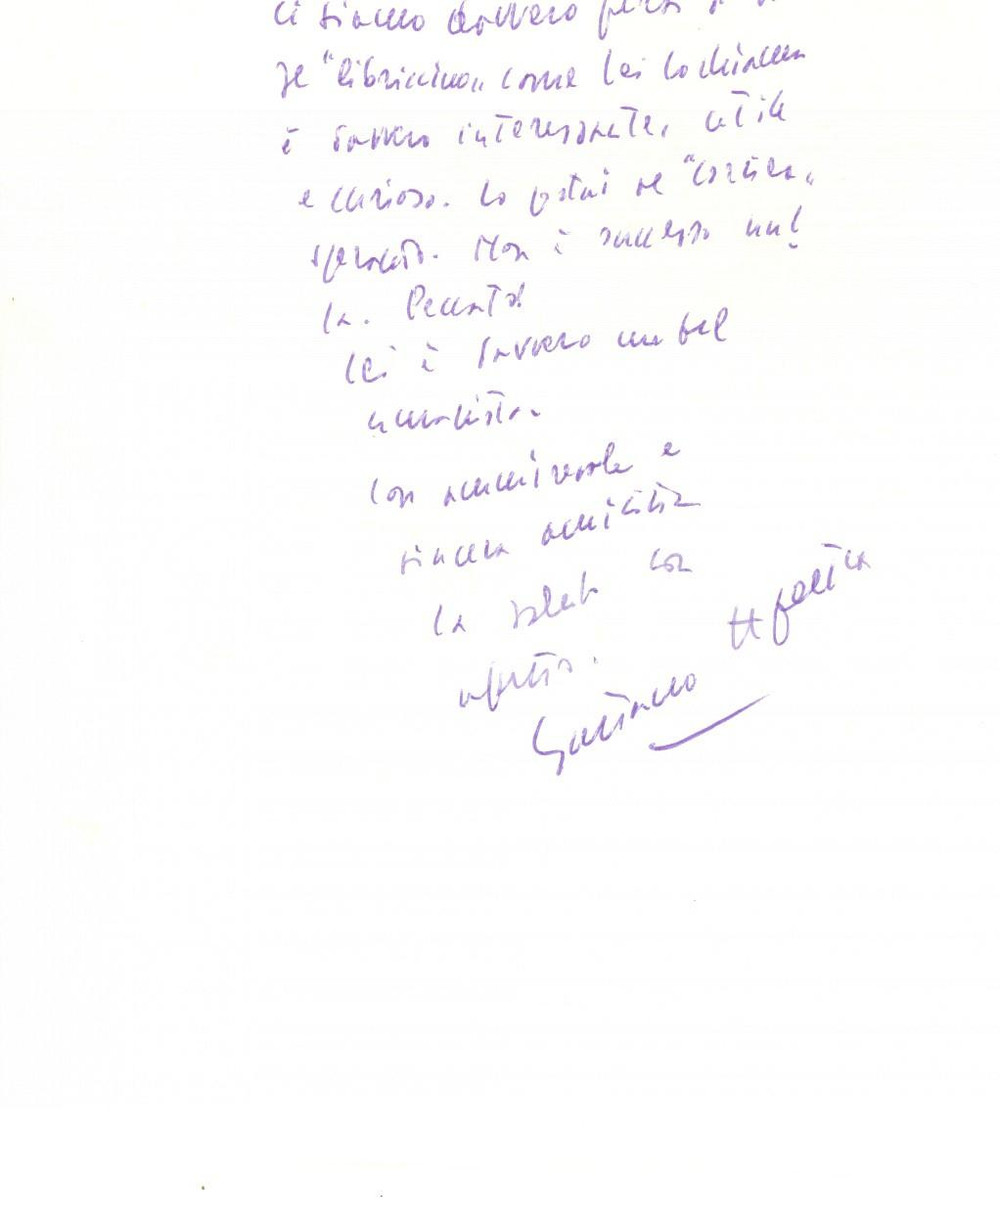 Ci siamo davvero persi
Il "libriccino" come lei lo chiama
è davvero interessante, utile
e curioso. Lo portai al "Corriere"
sperando. Non è successo nul
la. Peccato!
Lei è davvero un bel
umorista.
Con ammirevole e
sincera amicizia
la saluto con
affetto.
Gaetano Afeltra